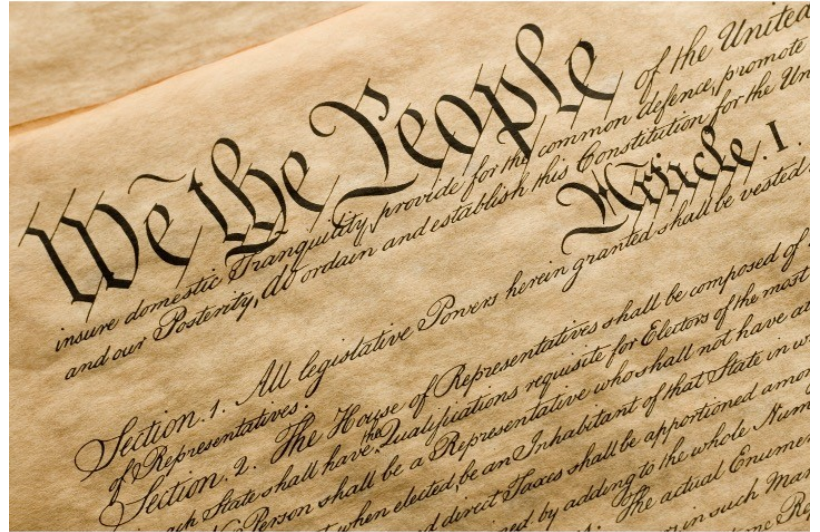 We the People of the United
insure domestic Tranquility, provide for the common defence, promote
and our Posterity, do ordain and establish this Constitution for the Un
Article. I.
Section. 1. All legislative Powers herein granted shall be vested
of Representatives.
Section. 2. The House of Representatives shall be composed of
ach State shall have the Qualifications requisite for Electors of the most
No Person shall be a Representative who shall not have at
when elected, be an Inhabitant of that State in w
d direct Taxes shall be apportioned amon
ned, by adding to the whole Num
The actual Enumer
in such Man